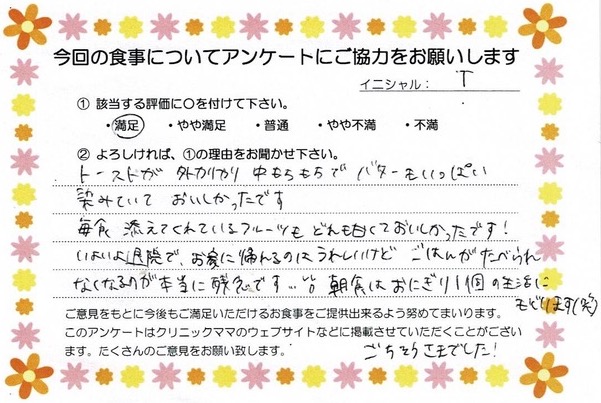 今回の食事についてアンケートにご協力をお願いします
イニシャル: T
① 該当する評価に○を付けて下さい。
・満足 ・やや満足 ・普通 ・やや不満 ・不満
② よろしければ、①の理由をお聞かせ下さい。
トーストが 外カリカリ 中もちもちで バターもいっぱい
染みていて おいしかったです
毎食 添えてくれているフルーツも どれも甘くておいしかったです!
いよいよ退院で、お家に帰れるのはうれしいけど ごはんがたべられ
なくなるのが本当に残念です… 朝食はおにぎり1個の生活に
もどります(笑)
ご意見をもとに今後もご満足いただけるお食事をご提供出来るよう努めてまいります。
このアンケートはクリニックママのウェブサイトなどに掲載させていただくことがござい
ます。たくさんのご意見をお願い致します。
ごちそうさまでした!